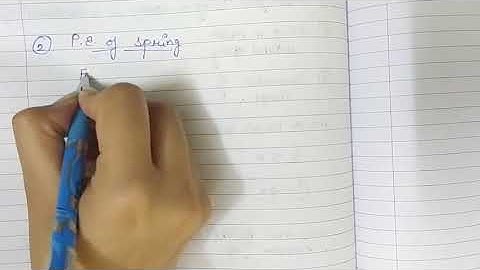 ② P.E of spring
F